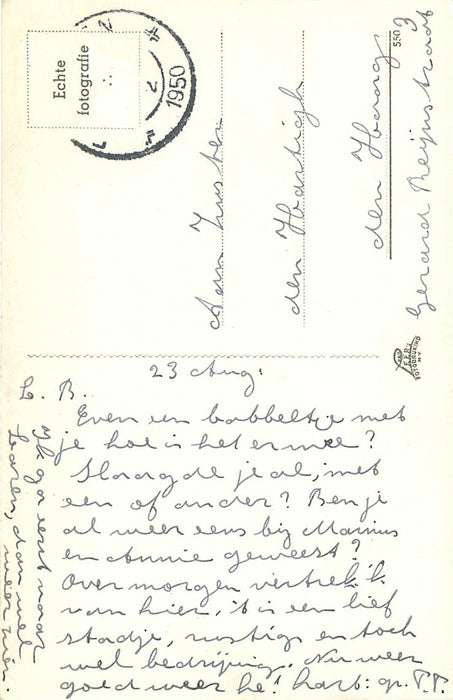 Echte
fotografie
1950
Aan Zuster
den Hartigh
den Haag
Gerard Reijnstraat
3
550
23 Aug:
L. B.
Even een babbeltje met
je hoe is het er mee?
Slaagde je al, met
een of ander? Ben je
al weer eens bij Marinus
en Annie geweest?
Over morgen vertrek ik
van hier, 't is een lief
stadje, rustig en toch
wel bedrijvig. Nu weer
goed weer he! hart: gr. P.P.
Ik ga eerst naar
Laren, dan wel
weer